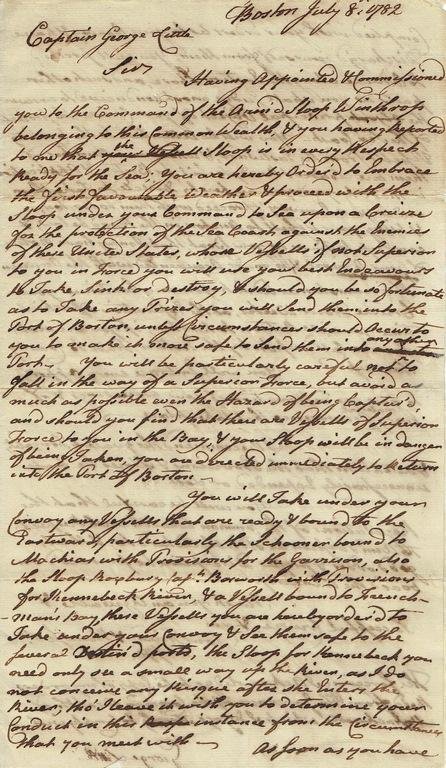 Boston July 8th 1782
Captain George Little
Sir
Having Appointed & Commissioned
you to the Command of the Armed Sloop Winthrop
belonging to this Common Wealth, & you having Reported
to me that the Sloop is in every Respect
Ready for the Sea; You are hereby Order'd to Embrace
the first favourable Weather & proceed with the
Sloop under your Command to Sea upon a Cruize
for the protection of the Sea Coast against the Enemies
of these United States, whose Vessells if not Superior
to you in Force you will use your best Endeavours
to Take, Sink or destroy, & should you be so fortunate
as to Take any Prizes you will Send them into the
Port of Boston, unless Circumstances should Occur to
you to make it more safe to Send them into any other
Port. You will be particularly careful not to
fall in the way of a Superior Force, but avoid as
much as posible even the Hazard of being Captur'd,
and should you find that there are Vessells of Superior
Force to you in the Bay, & your Sloop will be in danger
of being Taken, you are directed immediately to Return
into the Port of Boston
You will Take under your
Convoy any Vessells that are ready & bound to the
Eastward, particularly the Schooner bound to
Machias with Provisions for the Garrison, also
the Sloop Roxbury Capt. with Provisions
for Kennebeck River, & a Vessell bound to French-
-mans Bay, these Vessells you are hereby order'd to
Take under your Convoy & See them safe to the
several Destin'd ports, the Sloop for Kennebeck you
need only see a small way up the River, as I do
not conceive any Risque after she Enters the
River, tho' I leave it with you to determine your
Conduct in this instance from the Circumstances
that you meet with
As soon as you have